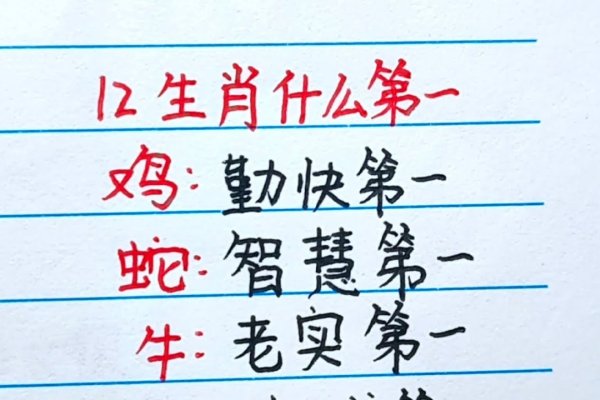 12生肖什么第一
鸡：勤快第一
蛇：智慧第一
牛：老实第一